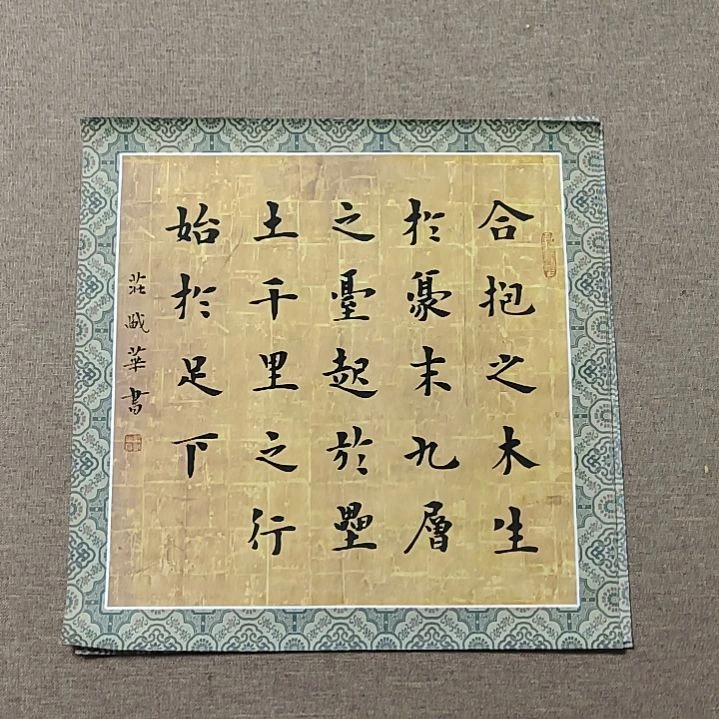 合抱之木生
於豪末九層
之臺起於壘
土千里之行
始於足下
莊晠華書